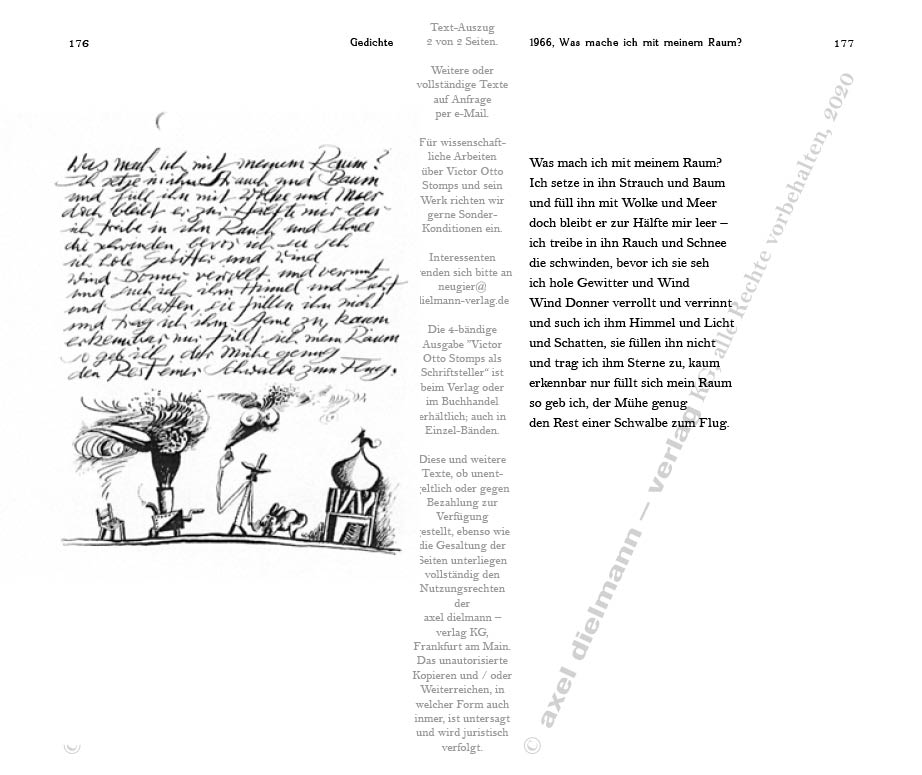 176
Gedichte
Was mach ich mit meinem Raum?
Ich setze in ihn Strauch und Baum
und füll ihn mit Wolke und Meer
doch bleibt er zur Hälfte mir leer
ich treibe in ihn Rauch und Schnee
die schwinden, bevor ich sie seh
ich hole Gewitter und Wind
Wind Donner verrollt und verrinnt
und such ich ihm Himmel und Licht
und Schatten, sie füllen ihn nicht
und trag ich ihm Sterne zu, kaum
erkennbar nur füllt sich mein Raum
so geb ich, der Mühe genug
den Rest einer Schwalbe zum Flug.
©
Text-Auszug
2 von 2 Seiten.
Weitere oder
vollständige Texte
auf Anfrage
per e-Mail.
Für wissenschaft-
liche Arbeiten
über Victor Otto
Stomps und sein
Werk richten wir
gerne Sonder-
Konditionen ein.
Interessenten
enden sich bitte an
neugier@
ielmann-verlag.de
Die 4-bändige
Ausgabe "Victor
Otto Stomps als
Schriftsteller" ist
beim Verlag oder
im Buchhandel
erhältlich; auch in
Einzel-Bänden.
Diese und weitere
Texte, ob unent-
geltlich oder gegen
Bezahlung zur
Verfügung
gestellt, ebenso wie
die Gesaltung der
Seiten unterliegen
vollständig den
Nutzungsrechten
der
axel dielmann –
verlag KG,
Frankfurt am Main.
Das unautorisierte
Kopieren und / oder
Weiterreichen, in
welcher Form auch
inmer, ist untersagt
und wird juristisch
verfolgt.
1966, Was mache ich mit meinem Raum?
177
Was mach ich mit meinem Raum?
Ich setze in ihn Strauch und Baum
und füll ihn mit Wolke und Meer
doch bleibt er zur Hälfte mir leer –
ich treibe in ihn Rauch und Schnee
die schwinden, bevor ich sie seh
ich hole Gewitter und Wind
Wind Donner verrollt und verrinnt
und such ich ihm Himmel und Licht
und Schatten, sie füllen ihn nicht
und trag ich ihm Sterne zu, kaum
erkennbar nur füllt sich mein Raum
so geb ich, der Mühe genug
den Rest einer Schwalbe zum Flug.
© axel dielmann – verlag KG, alle Rechte vorbehalten, 2020